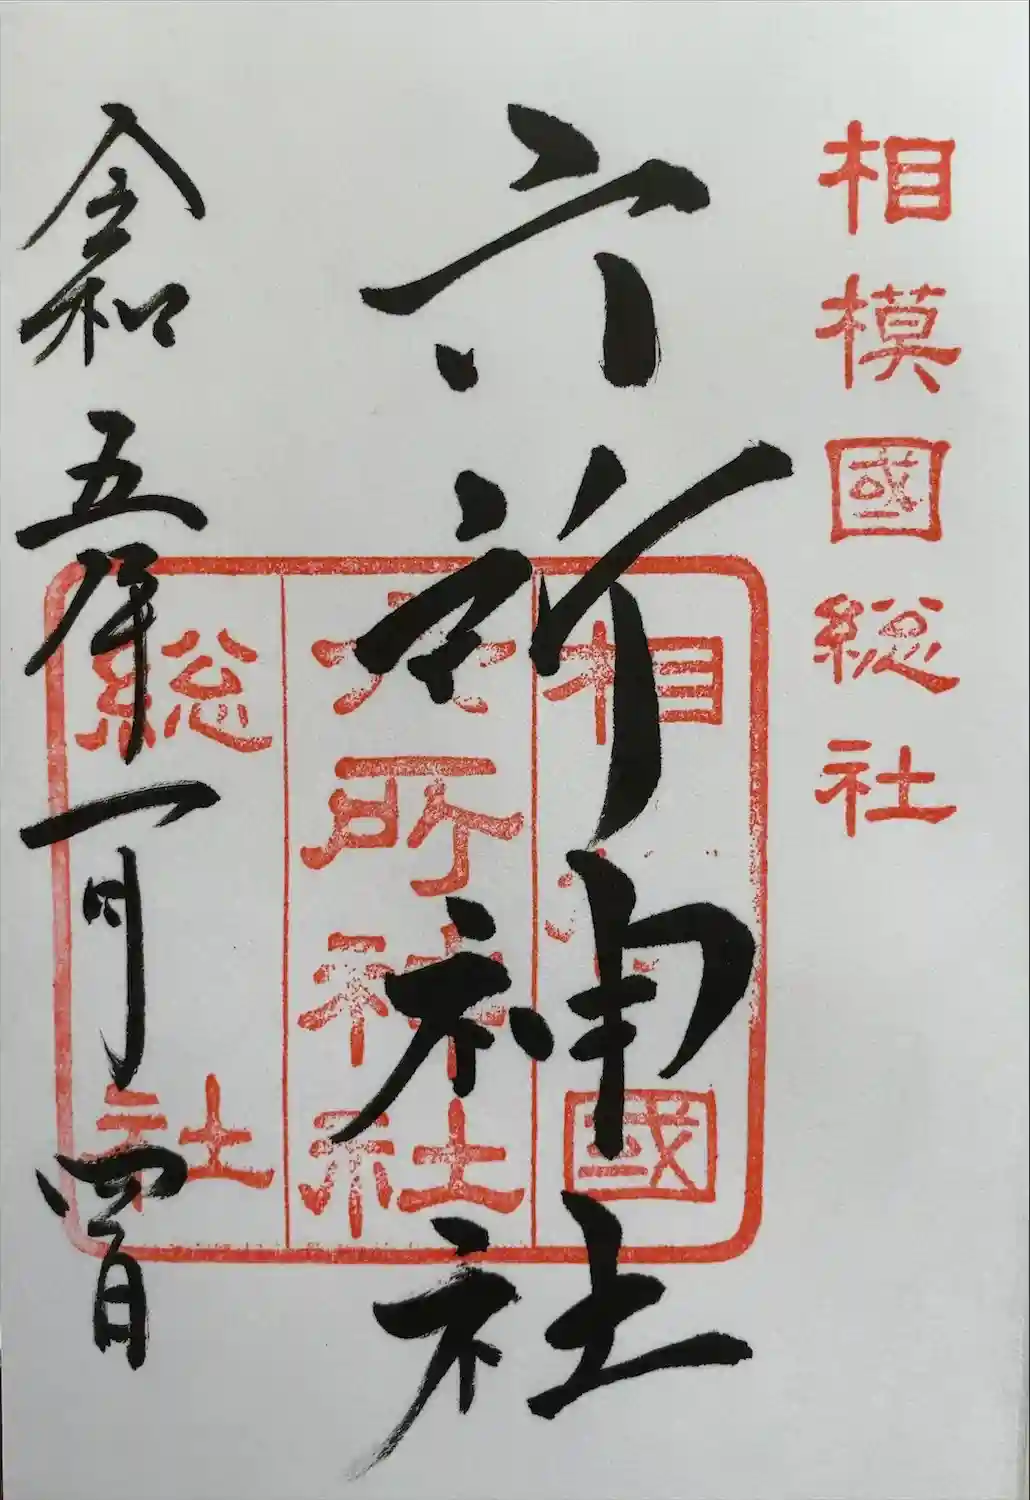 相模國総社
六所神社
相 國
六所神社
総社
令和五年一月四日